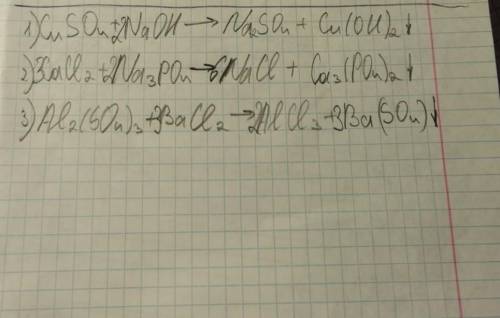 1) CuSO₄+2NaOH → Na₂SO₄ + Cu(OH)₂↓
2) 3CaCl₂ + 2Na₃PO₄ → 6NaCl + Ca₃(PO₄)₂↓
3) Al₂(SO₄)₃ + 3BaCl₂ → 2AlCl₃ + 3Ba(SO₄)↓